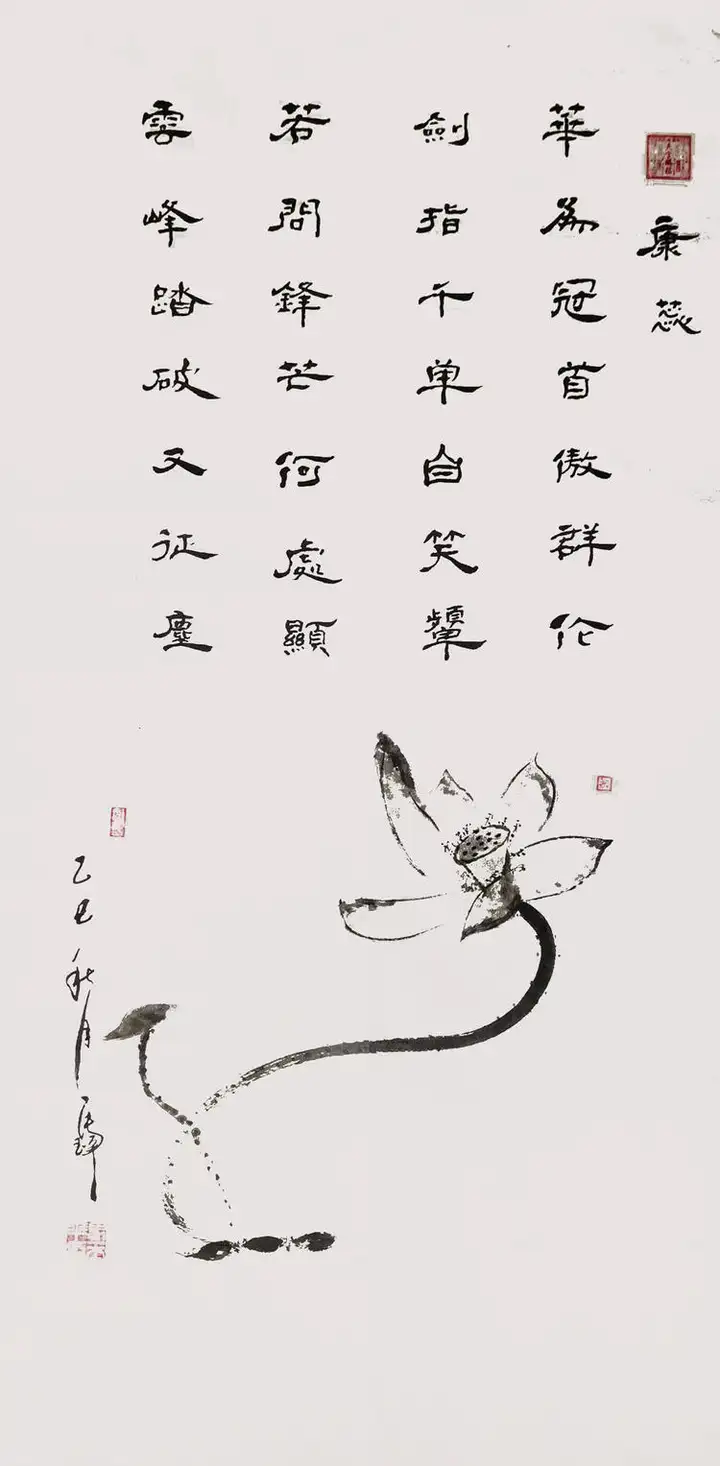 康蕊
華為冠首傲群伦
劍指千单自笑顰
若問鋒芒何處顯
雲峰踏破又征塵
乙巳秋月